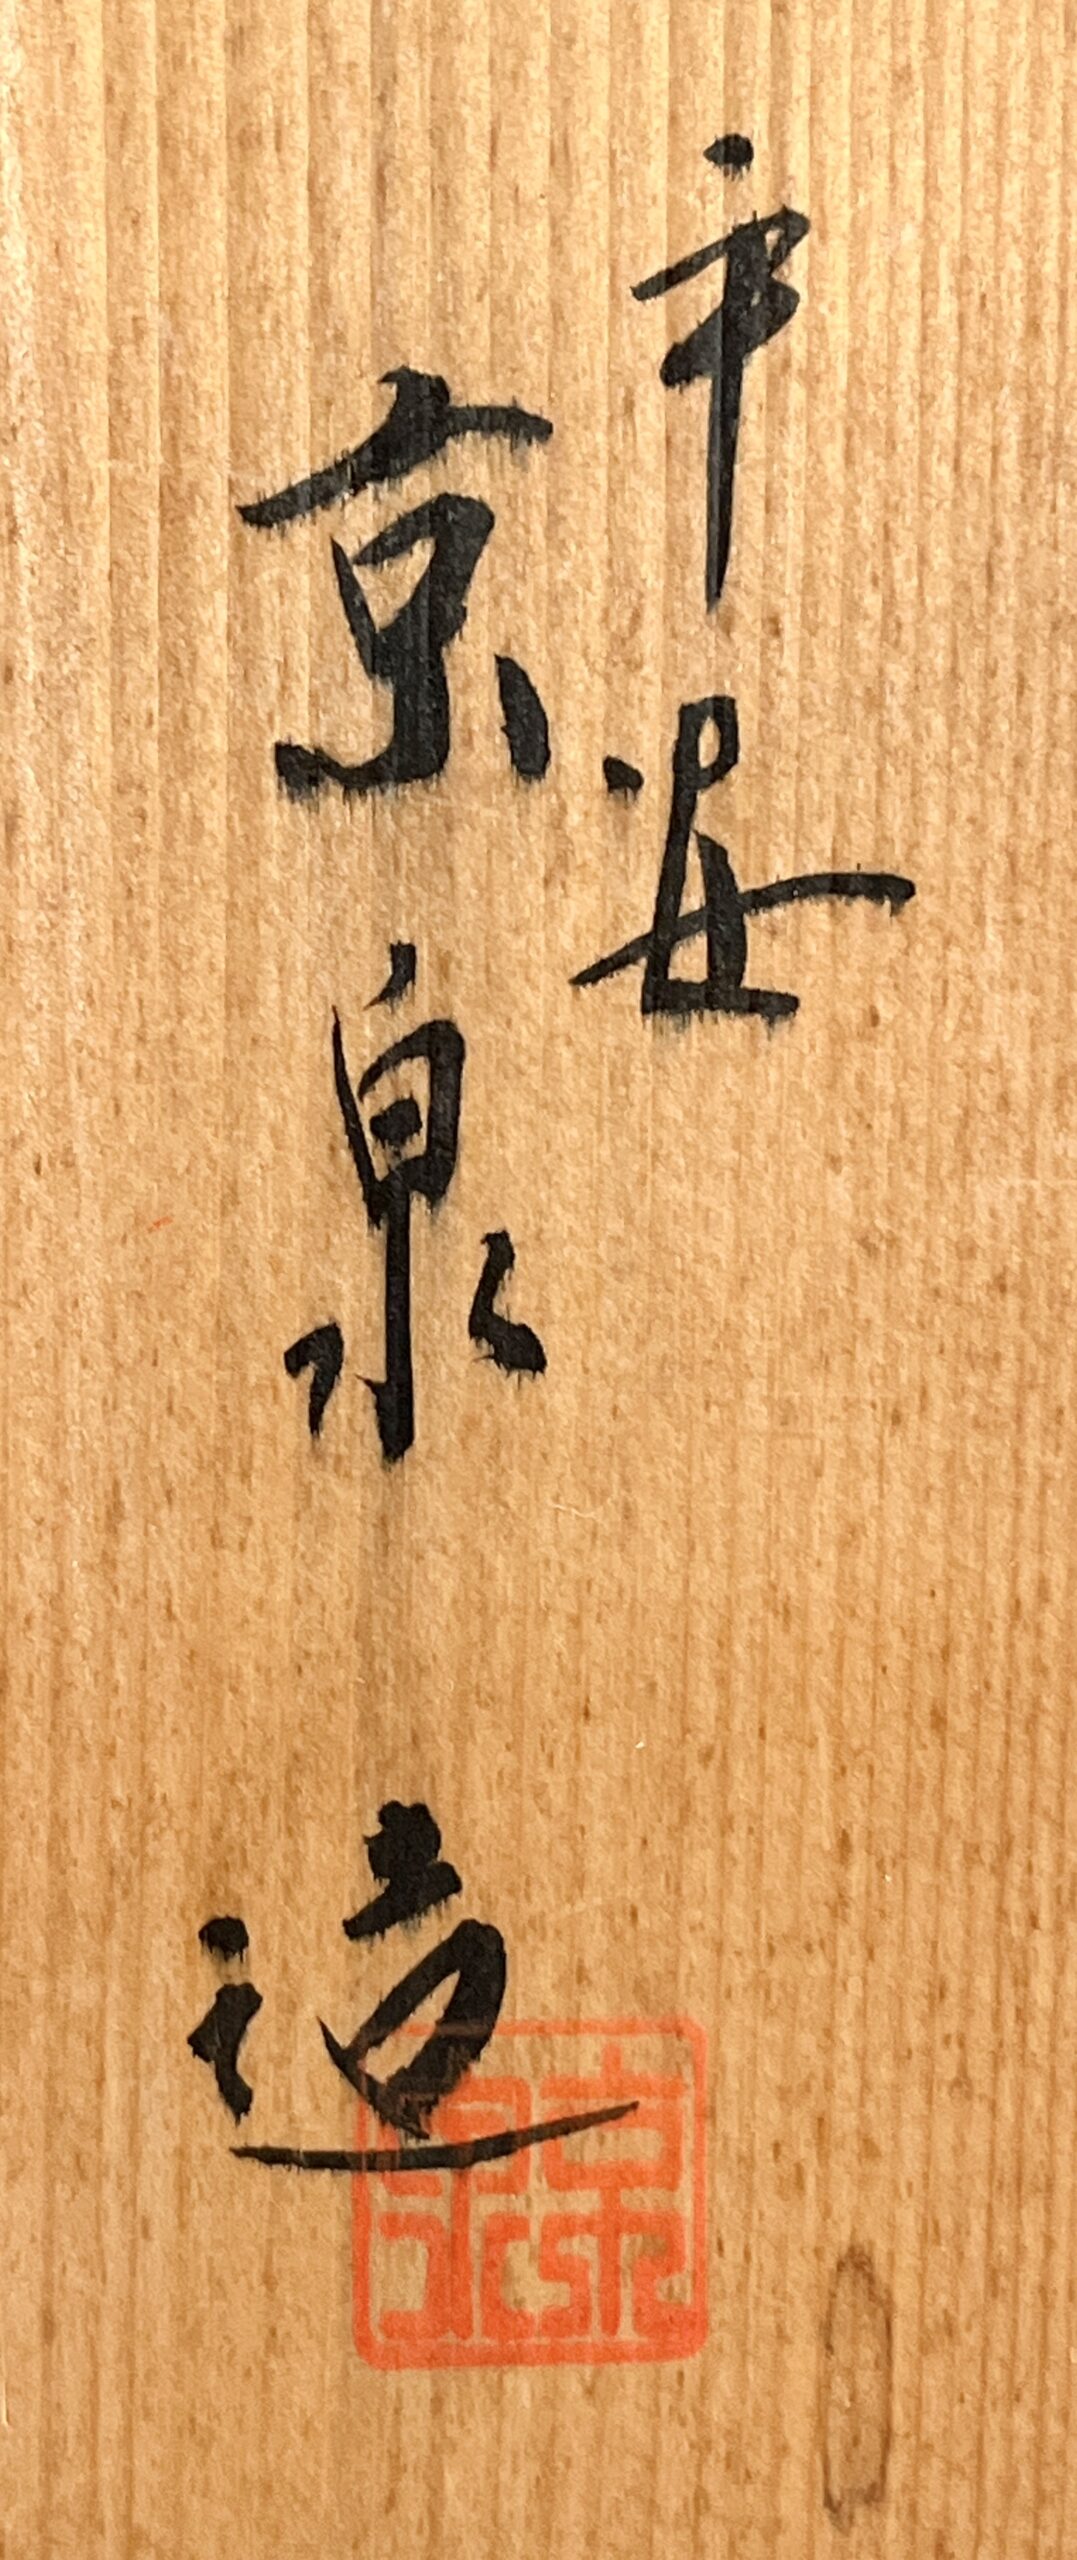 平安
京泉
造
京泉